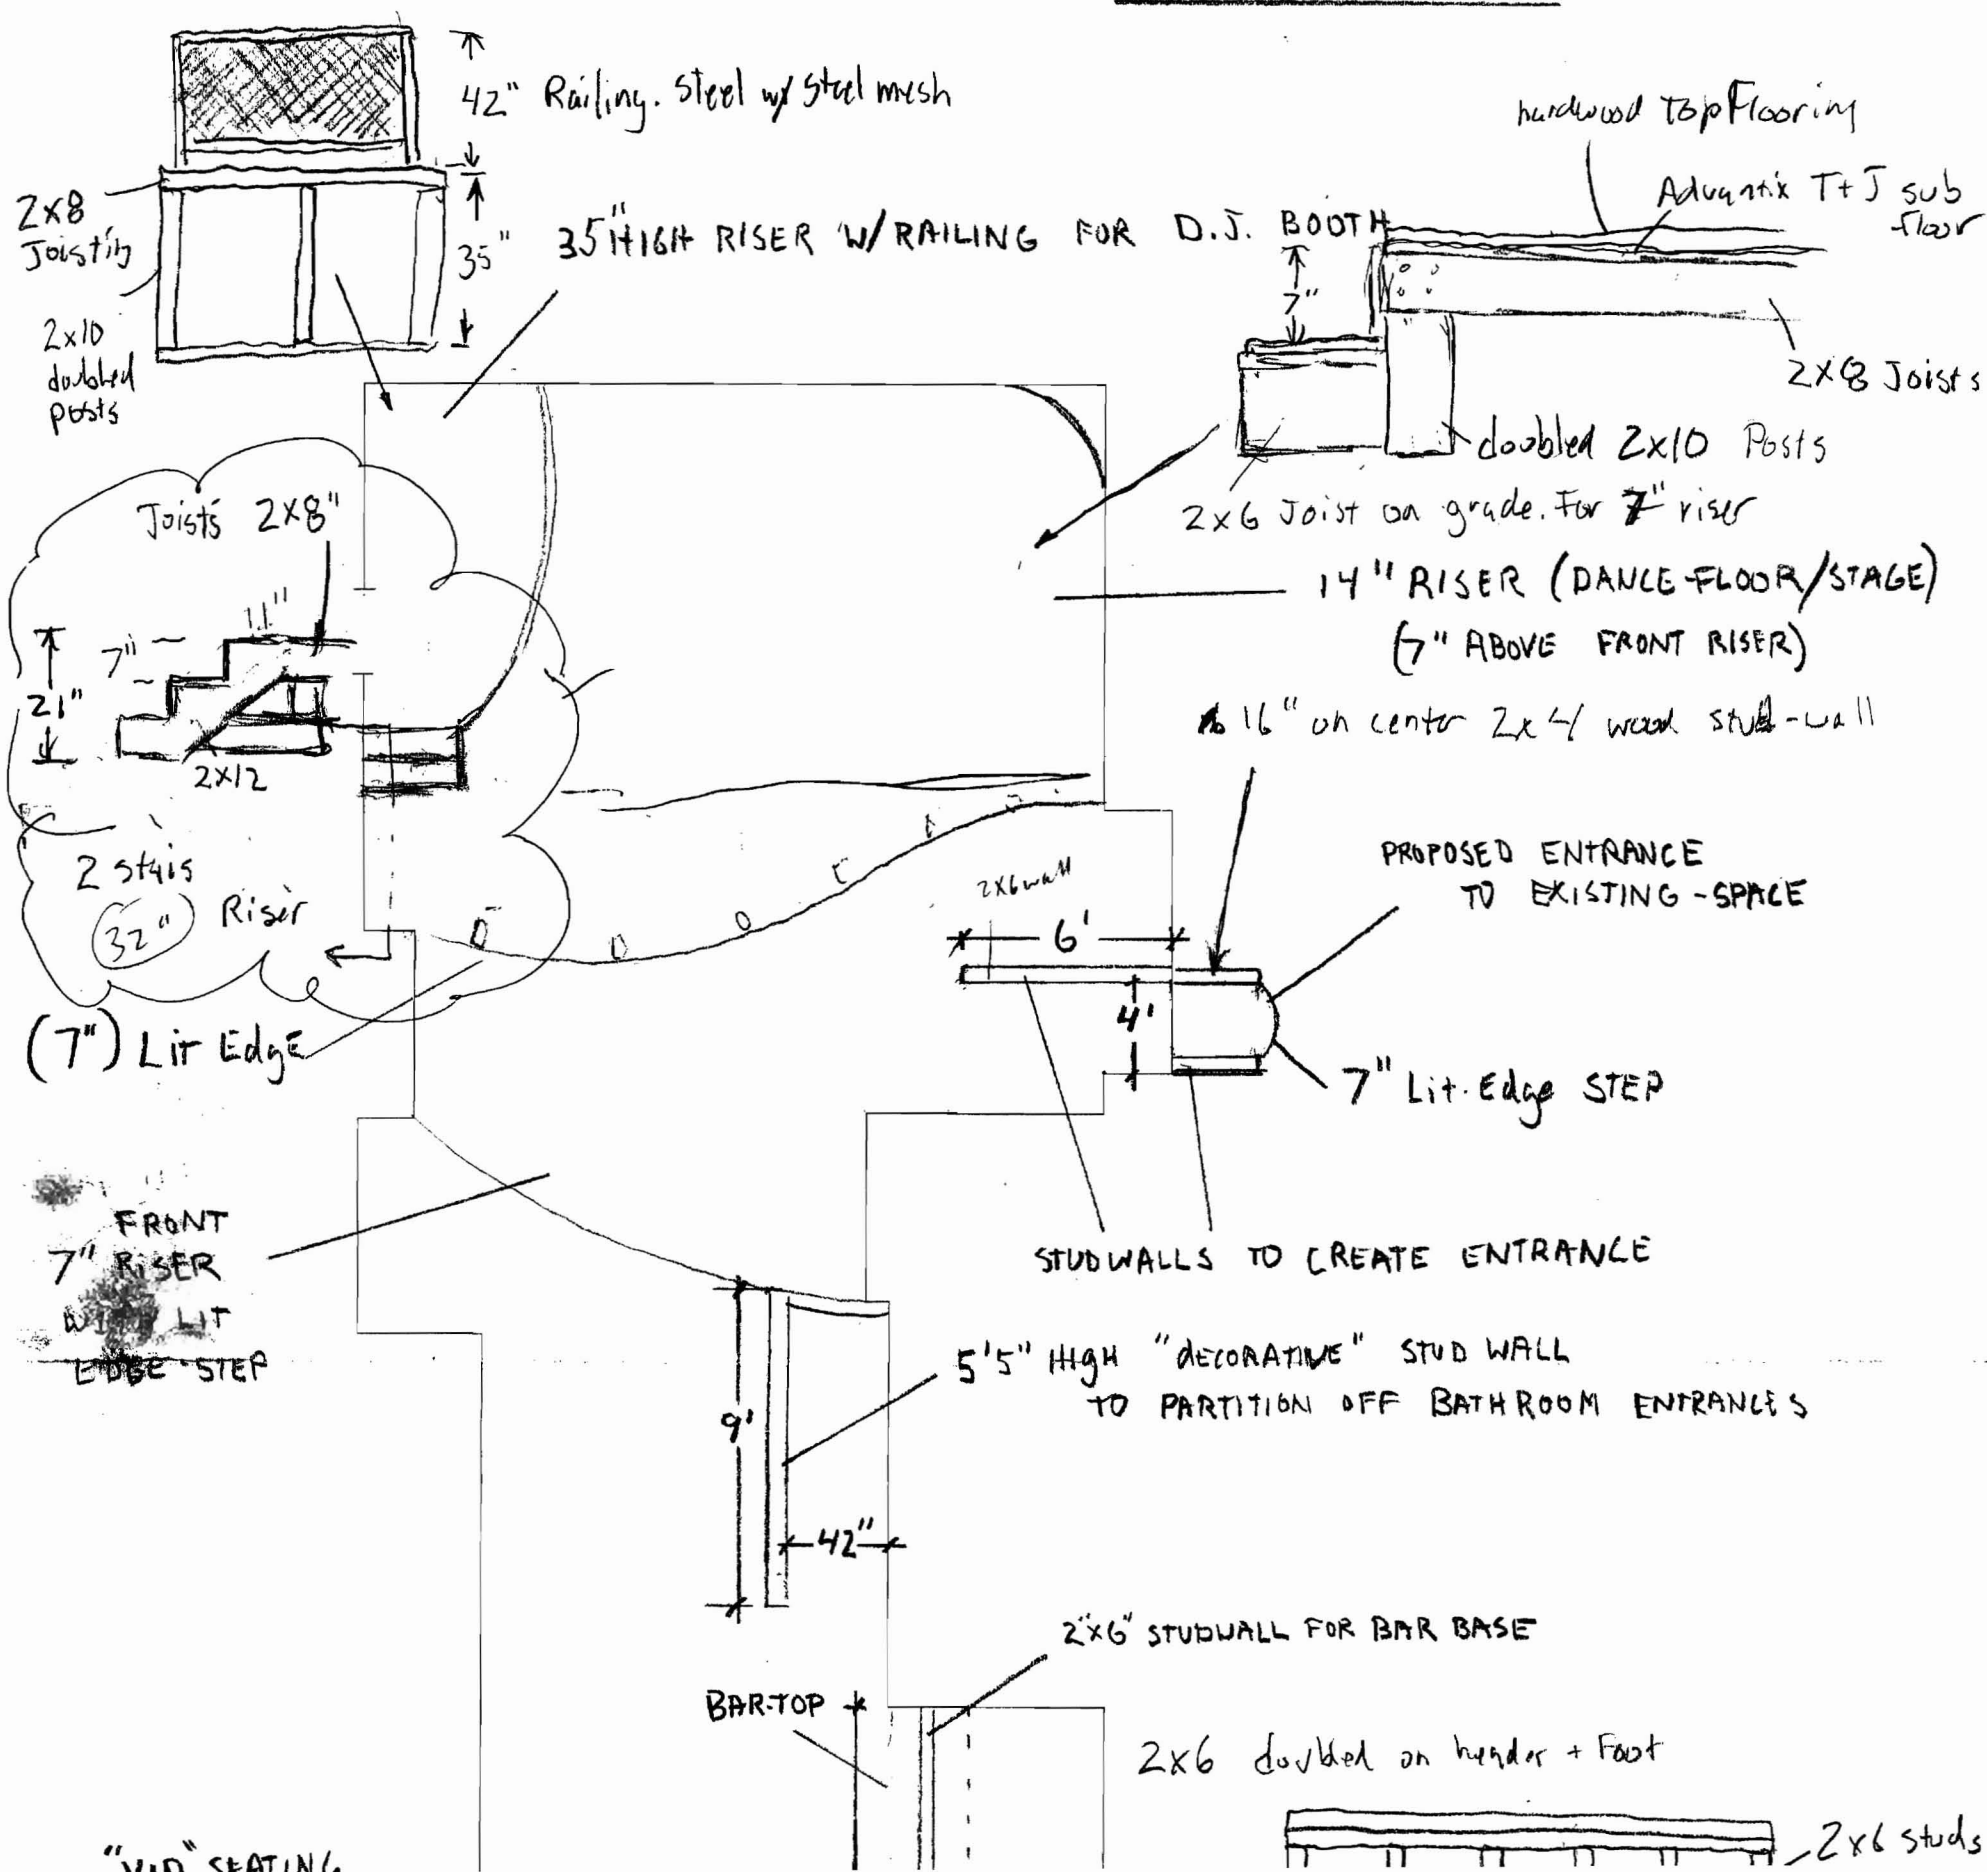 42" Railing. Steel w/ Steel mesh
2x8
Joisting
2x10
doubled
posts
35"
35" HIGH RISER W/RAILING FOR D.J. BOOTH
hardwood TopFlooring
Advantix T+J sub
floor
7"
2x8 Joists
doubled 2x10 Posts
2x6 Joist on grade. For 7" riser
14" RISER (DANCE-FLOOR/STAGE)
(7" ABOVE FRONT RISER)
Joists 2x8"
11"
7"
21"
2x12
2 stais
32" Riser
(7") Lit Edge
16" on center 2x4 wood stud-wall
PROPOSED ENTRANCE
TO EXISTING-SPACE
2x6 wall
6'
4'
7" Lit-Edge STEP
FRONT
7" RISER
WITH LIT
EDGE-STEP
STUDWALLS TO CREATE ENTRANCE
5'5" HIgH "dECORATIVE" STUD WALL
TO PARTITION OFF BATHROOM ENTRANCES
9'
42"
2"x6" STUDWALL FOR BAR BASE
BAR-TOP
2x6 doubled on header + Foot
2x6 studs
"VIP" SEATING